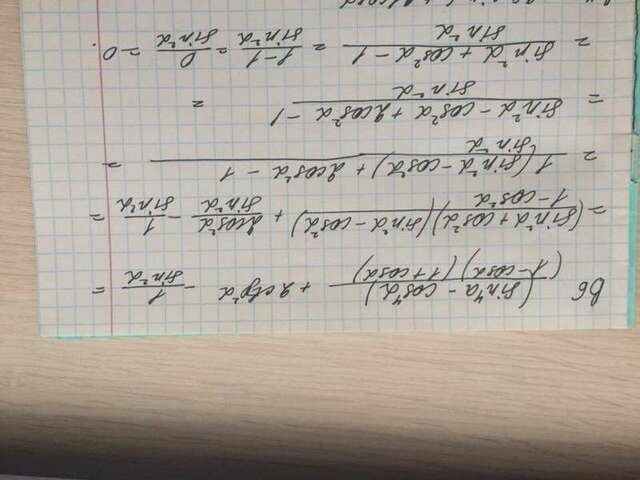 В6 (sin⁴α - cos⁴α) / (1-cosα)(1+cosα) + 2ctg²α - 1/sin²α =
= (sin²α + cos²α)(sin²α - cos²α) / 1-cos²α + 2cos²α/sin²α - 1/sin²α =
= 1(sin²α - cos²α) + 2cos²α - 1 / sin²α =
= sin²α - cos²α + 2cos²α - 1 / sin²α =
= sin²α + cos²α - 1 / sin²α = 1-1/sin²α = 0/sin²α = 0.